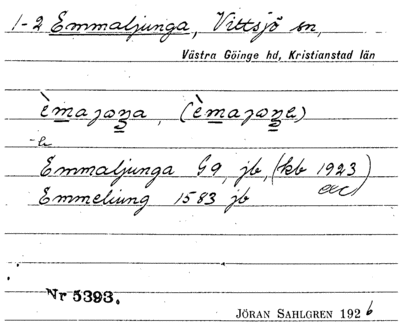 1-2 Emmaljunga, Vittsjö sn,
Västra Göinge hd, Kristianstad län
èmaȷoŋa, (èmaȷoŋa)
-a
Emmaljunga G9, jb, (kb 1923)
Emmeliung 1583 jb
Nr 5393.
JÖRAN SAHLGREN 1926